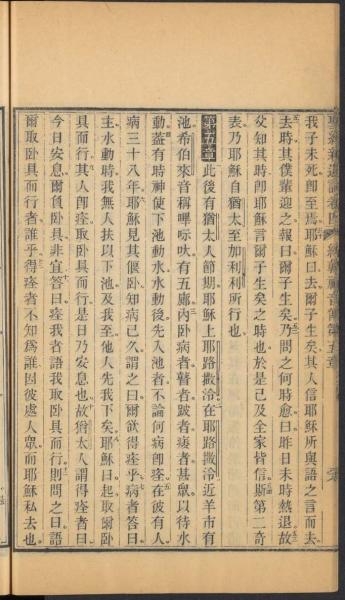 我子未死即至焉耶穌曰去爾子生矣其人信耶穌所與語之言而去
去時其僕輩迎之報曰爾子生矣乃問之何時愈曰昨日未時熱退故
父知其時即耶穌言爾子生矣之時也於是己及全家皆信斯第二奇
表乃耶穌自猶太至加利利所行也
第五章 此後有猶太人節期耶穌上耶路撒泠在耶路撒泠近羊市有
池希伯來音稱嗶呩吠有五廊內卧病者瞽者跛者痿者甚眾以待水
動葢有時神使下池動水水動後先入池者不論何病即痊在彼有人
病三十八年耶穌見其偃卧知病已久謂之曰爾欲得痊乎病者答曰
主水動時我無人扶以下池及我至他人先我下矣耶穌曰起取爾卧
具而行其人即痊取卧具而行是日乃安息也故猶太人謂得痊者曰
今日安息爾負卧具非宜答曰痊我者語我取卧具而行則問之曰語
爾取卧具而行者誰乎得痊者不知為誰因彼處人眾而耶穌私去也